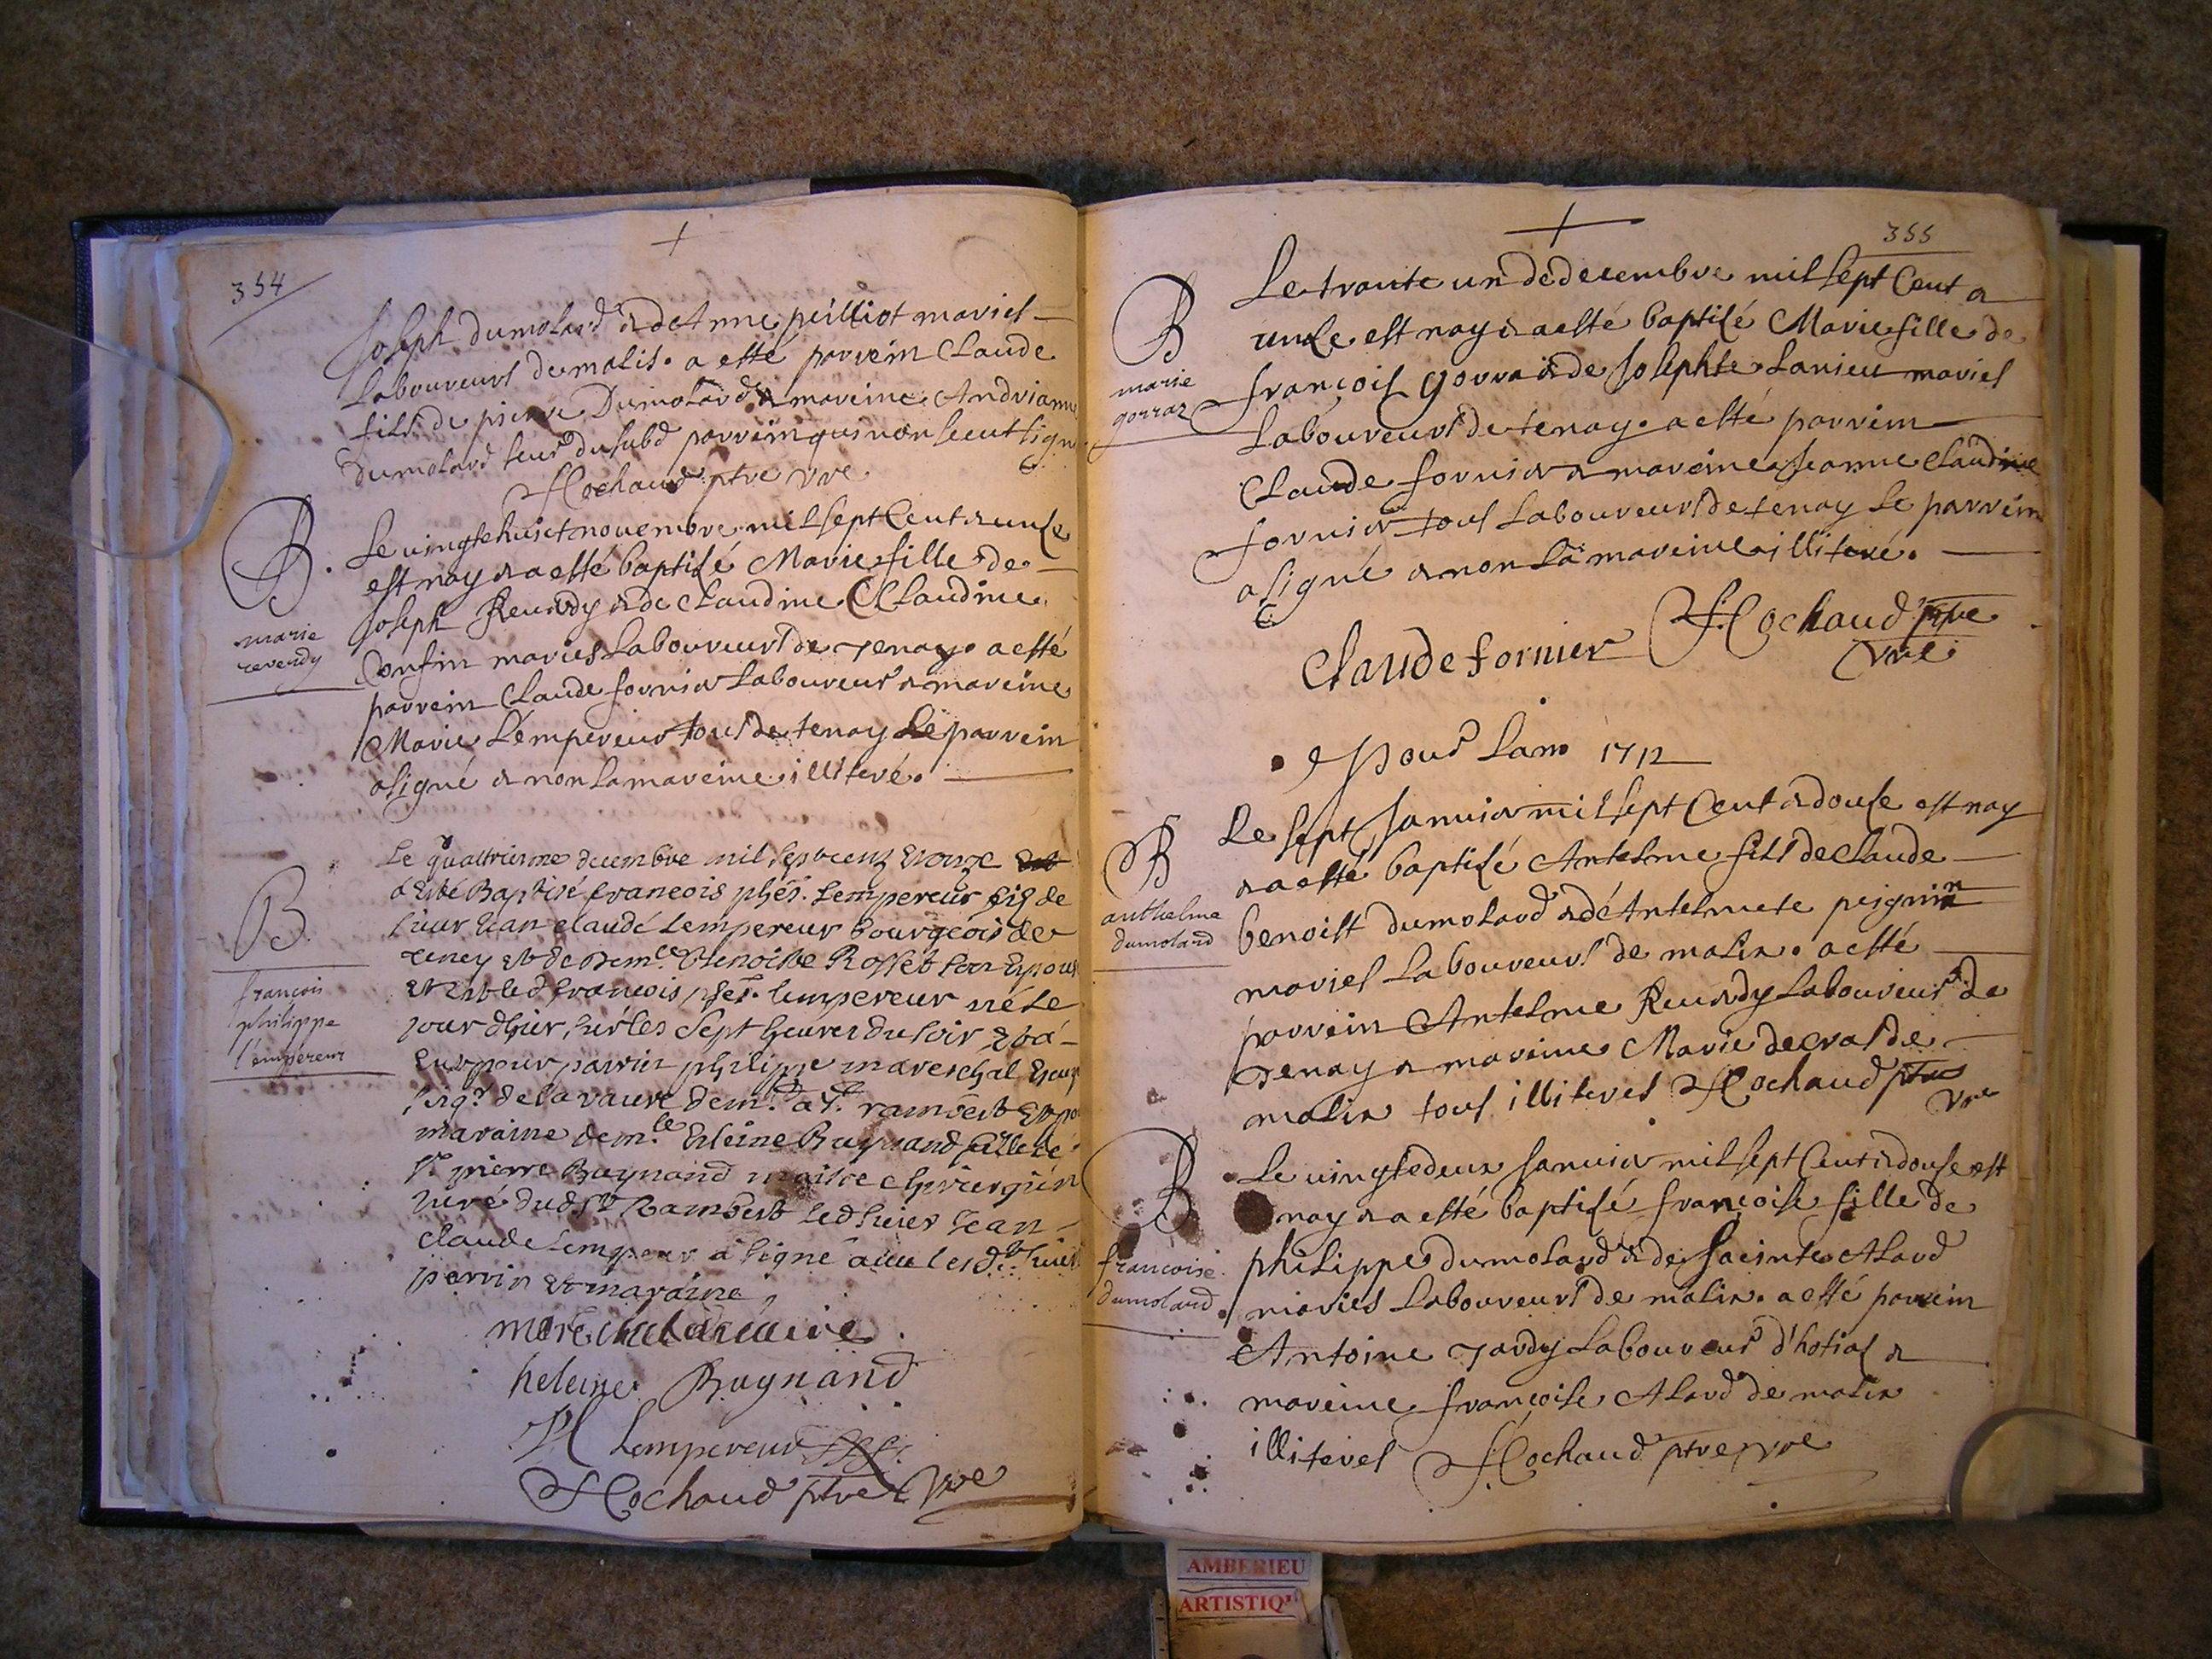 354
Joseph dumolard & de Anne peilliot mariés
Laboureurs de malis. a esté parrein Claude
fils de pierre Dumolard & mareine Andrianne
dumolard seur du subd parrein qui non sceut signe
Cochaud ptre vre
B.
marie
reverdy
Le vingtehuict novembre mil sept Cent & unse
est nay & a esté baptisé Marie fille de
Joseph Reverdy & de Claudine Claudine
Confin mariés Laboureurs de Tenay. a esté
parrein Claude fornier Laboureur & mareine
Marie Lempereur tous de tenay Le parrein
a signé & non la mareine illiteré.
B
francois
philippe
l'empereur
Le quattriesme decembre mil sept cent et onze
a Esté Baptisé francois phes. Lempereur fis de
sieur Jean claude Lempereur bourgeois de
Teney et de Dem.le Benoitte Rosset son Epouse
Lempereur né Le
jour dhier, sur les Sept heures du soir et a
Eu pour parrin philippe mareschal
seigr de la vavre dem.t a St. rambert et po
maraine dem.le Eleine Buynand fille de
sr pierre Buynand maistre chirurgien
juré dud St Rambert led sieur Jean
claude Lempereur a signé avec les dts sieur
parrin et maraine
mareschal lavavre
heleine Buynand
Lempereur
Cochaud ptre vre
355
B
marie
gorraz
Le trante un de decembre mil sept Cent &
unse est nay & a esté baptisé Marie fille de
françois gorra & de Josephte Lanieu mariés
Laboureurs de tenay. a esté parrein
Claude fornier & mareine Jeanne Claudine
fornier tous Laboureurs de tenay Le parrein
a signé & non La mareine illiteré.
Claude fornier Cochaud ptre
vre
Pour Lan 1712
B
anthelme
dumolard
Le sept Janvier mil sept Cent & douse est nay
& a esté baptisé Antelme fils de Claude
benoist dumolard & de Antelmete peignin
mariés Laboureurs de malix. a esté
parrein Antelme Reverdy Laboureur de
Tenay & mareine Marie decrosde
malix tous illiterés Cochaud ptre
vre
B
francoise
dumolard
Le vingtedeux Janvier mil sept Cent & douse est
nay & a esté baptisé françoise fille de
philippe dumolard & de Jacinte Alard
mariés Laboureurs de malix. a esté parrein
Antoine Jardy Laboureur d'hotias &
mareine françoise Alard de malix
illiterés Cochaud ptre vre
AMBERIEU
ARTISTIQ